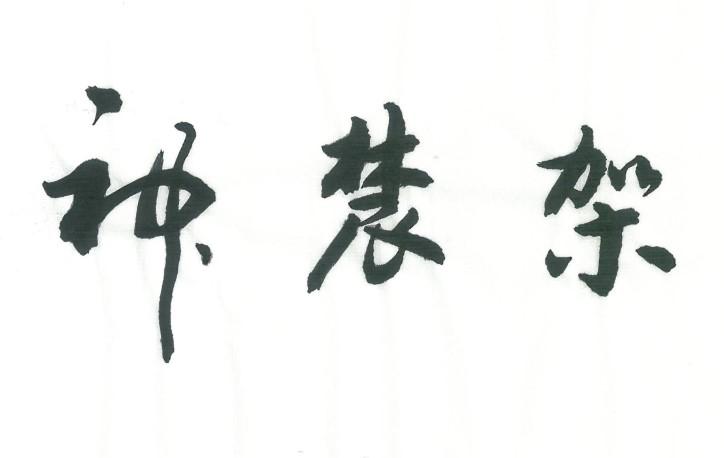 神農架